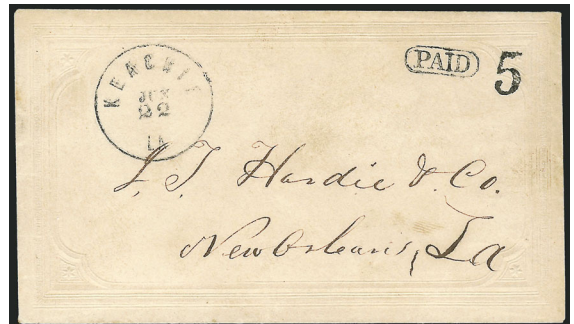 KEACHIE
JUN
22
LA
PAID 5
J. T. Hardie & Co.
New Orleans, La